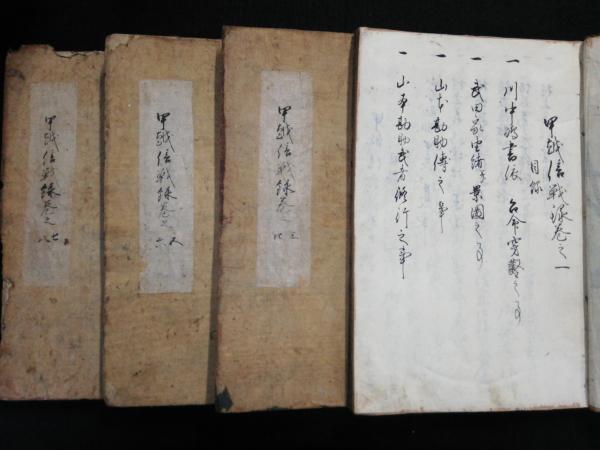 甲越信戦録巻之一
目録
一 川中嶋書依 台命穿鑿之事
一 武田家由緒并景圖之事
一 山本勘助傳之事
一 山本勘助武者修行之事
甲越信戦録巻之
三
四
甲越信戦録巻之
五
六
甲越信戦録巻之
七
八